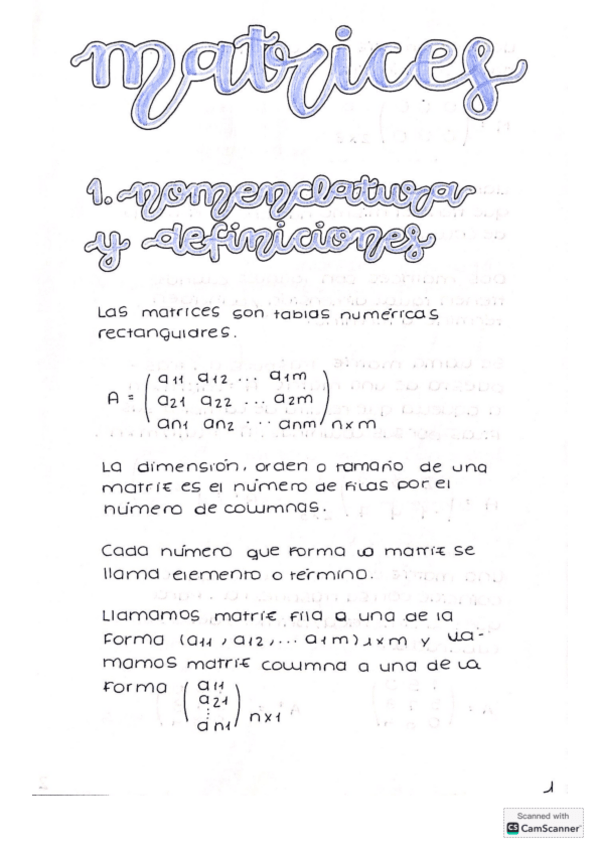 matrices
1. nomenclatura
y definiciones
Las matrices son tablas numéricas
rectangulares.
A = ( a11 a12 ... a1m
a21 a22 ... a2m
an1 an2 ... anm ) n x m
La dimensión, orden o tamaño de una
matriz es el número de filas por el
número de columnas.
Cada número que forma la matriz se
llama elemento o término.
Llamamos matriz fila a una de la
forma (a11, a12, ... a1m) 1xm y lla-
mamos matriz columna a una de la
forma ( a11
a21
⋮
an1 ) nx1
1
Scanned with
CS CamScanner